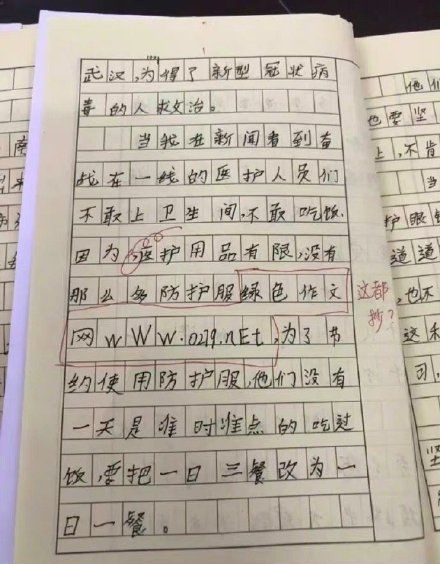 武汉,为得了新型冠状病
毒的人救治。
当我在新闻看到奋
战在一线的医护人员们
不敢上卫生间,不敢吃饭.
因为,医护用品有限,没有
那么多防护服绿色作文
网wWw.0279.nEt,为了节
约使用防护服,他们没有
一天是准时准点的吃过
饭,要把一日三餐改为一
日一餐。
这都
抄?
他们
也要坚
上,不肯
当
道道
也不